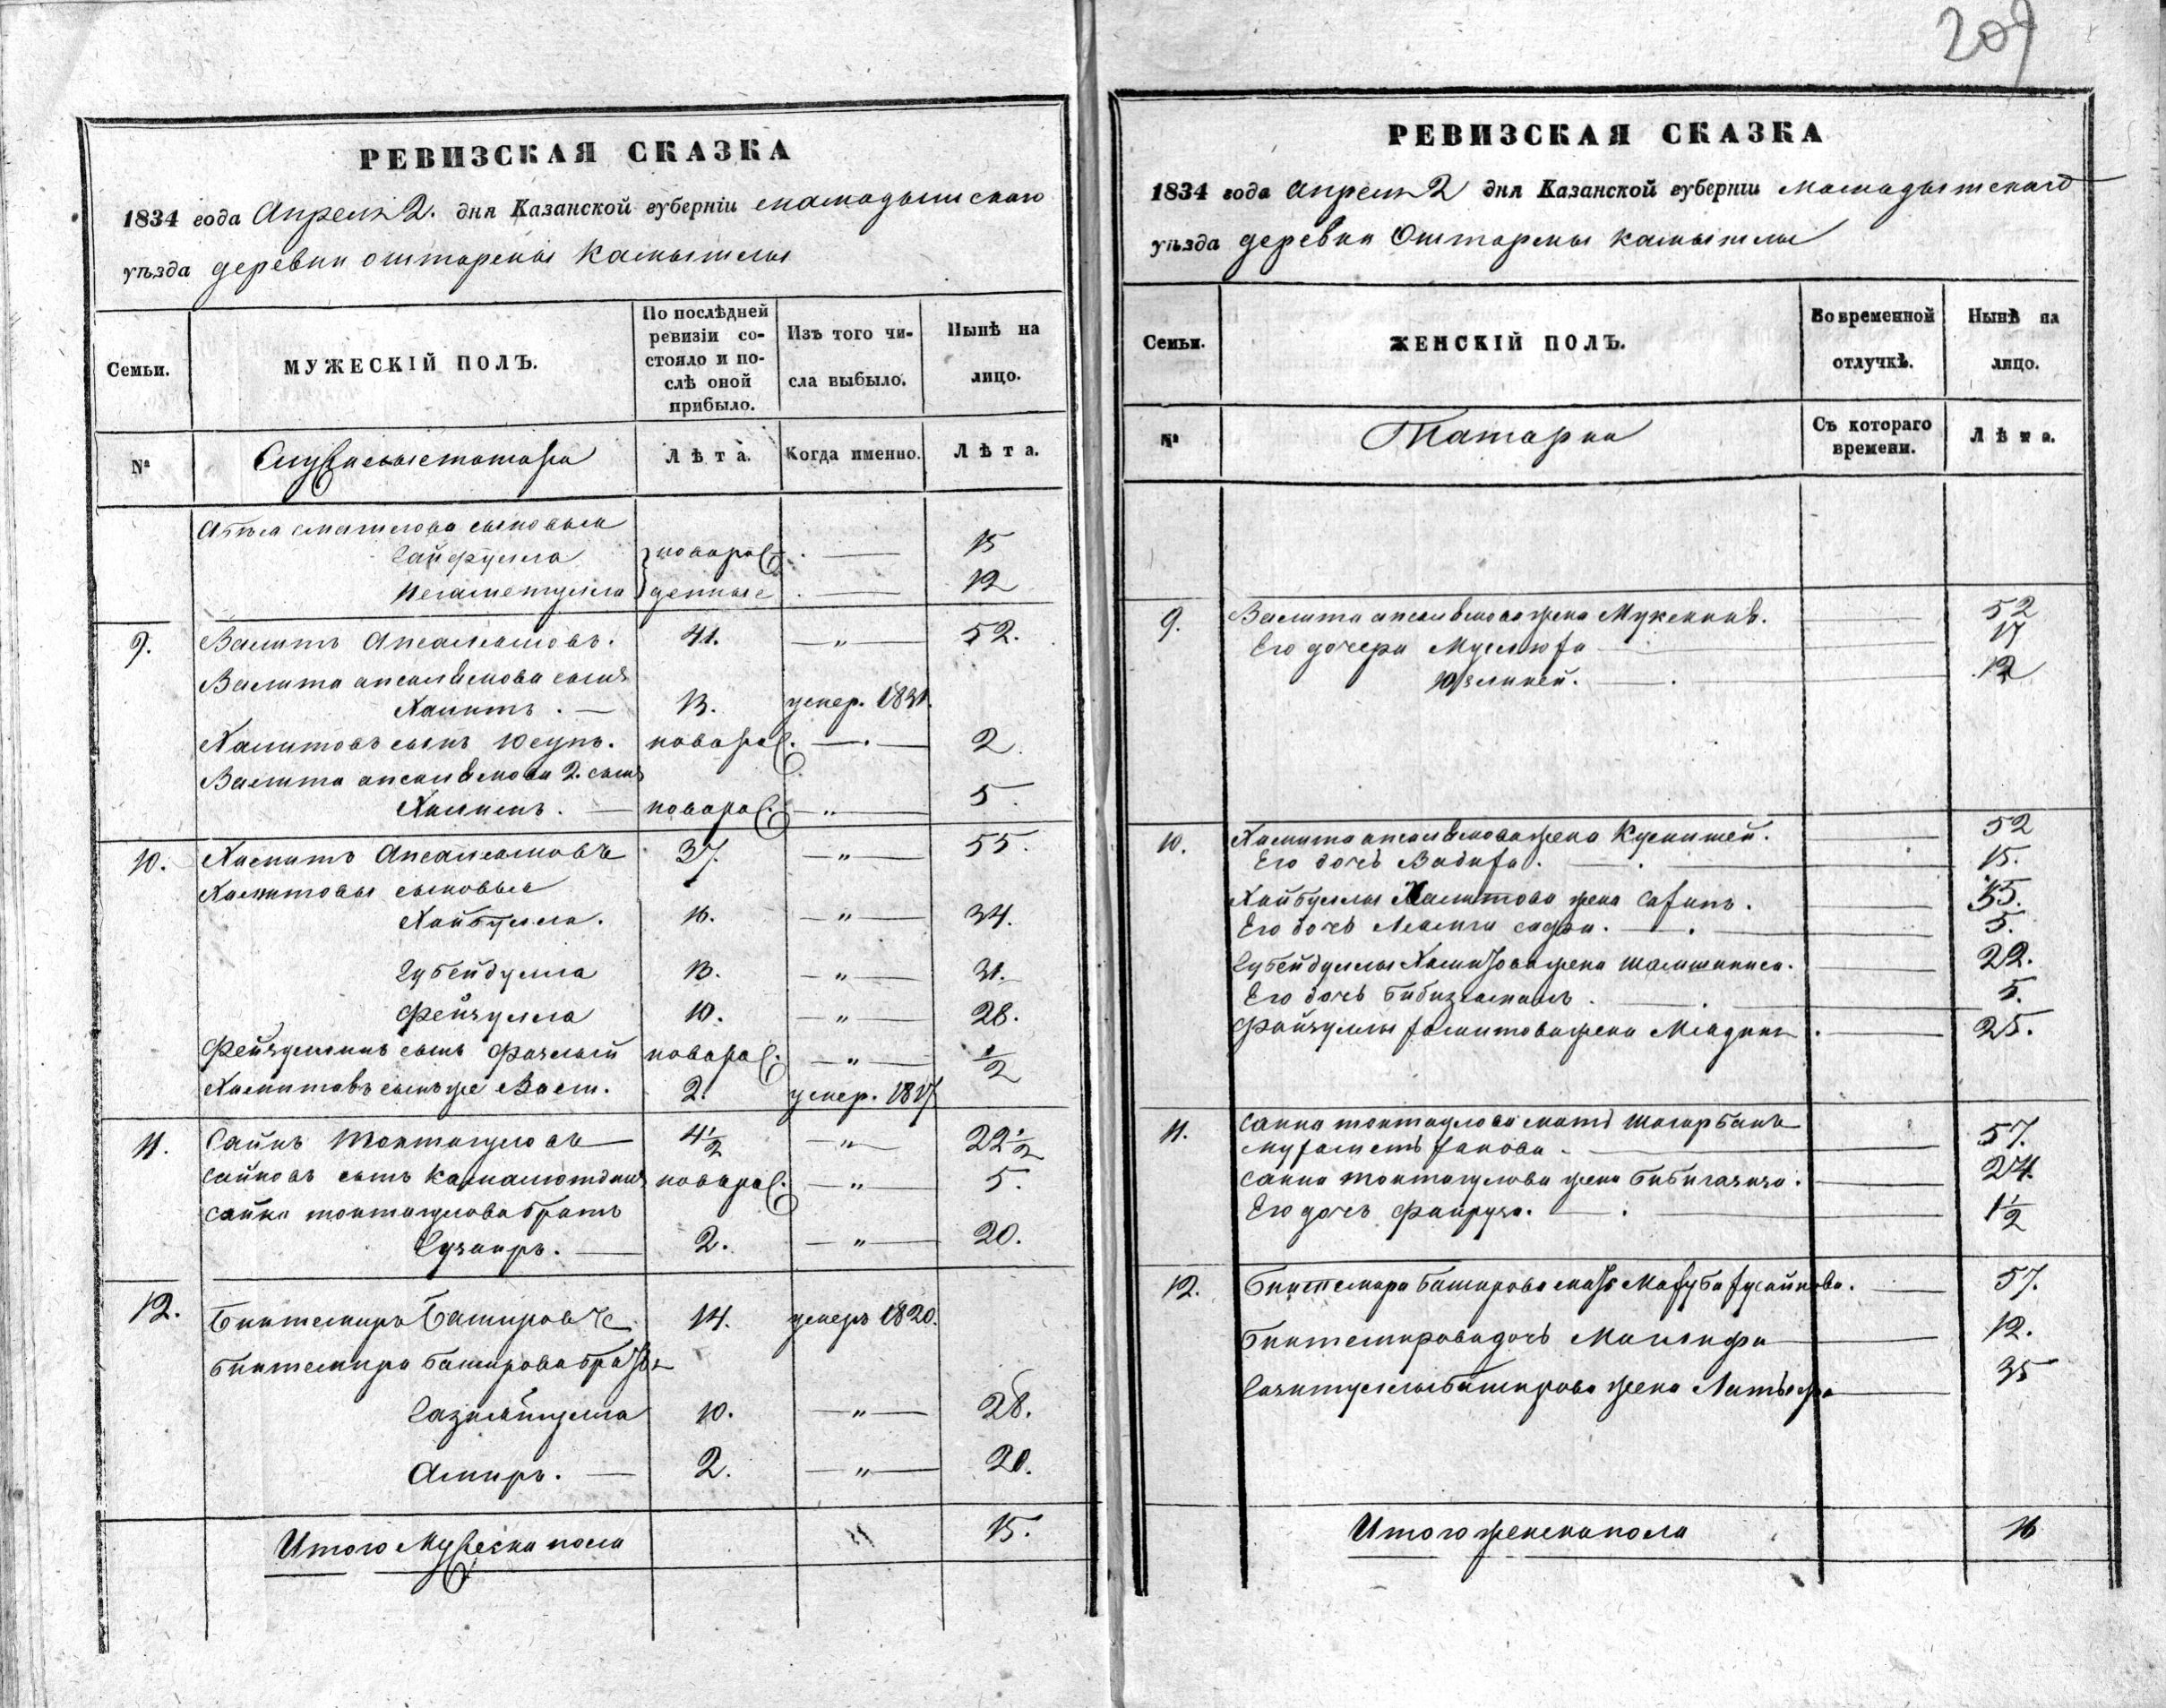 209
РЕВИЗСКАЯ СКАЗКА
1834 года Апреля 2. дня Казанской губерніи мамадышскаго
уѣзда деревни оштормы Камышлы
Семьи.
МУЖЕСКІЙ ПОЛЪ.
По послѣдней ревизіи состояло и послѣ оной прибыло.
Изъ того числа выбыло.
Нынѣ на лицо.
№
Служилыетатара
Лѣта.
Когда именно.
Лѣта.
сыновья
Сайфулла } новорож 15
Негаметулла } денные 12
9. Валитъ Апсалямовъ. 41. — „ — 52.
Валита апсалямова сынъ
Халитъ . — 13. умер. 1831.
Халитовъ сынъ Юсупъ. новорож. — . — 2
Валита апсалямова 2. сынъ
новорож. — „ — 5.
10. Хамитъ Апсалямовъ 37. — „ — 55.
Хамитовы сыновья
Хайбулла. 16. — „ — 34.
Губейдулла 13. — „ — 31.
Фейзулла 10. — „ — 28.
Фейзуллинъ сынъ Фазлый новорож. — „ — 1/2
Хамитовъ сынъже Вали. 2. умер. 1817
11. Саинъ Тоитагуловъ 4 1/2 „ 22 1/2
Саиновъ сынъ Камалютдинъ новорож. — „ — 5.
Саина тоитагулова братъ
2. — „ — 20.
12. Биктемиръ Башировъ 14. умеръ 1820.
Биктемира Баширова братья
10. — „ — 28.
Амиръ. — 2. — „ — 20.
Итого Мужеска пола „ 15.
РЕВИЗСКАЯ СКАЗКА
1834 года апреля 2 дня Казанской губерніи мамадышскаго
уѣзда деревни Оштормы камышлы
Семьи.
ЖЕНСКІЙ ПОЛЪ.
Во временной отлучкѣ.
Нынѣ на лицо.
№
Татарки
Съ котораго времени.
Лѣта.
9. Валита апсалямова жена 52
Его дочери 17
Юзликей. — . 12
10. Хамита апсалямова жена Кумишей. 52
Его дочь Вадига. — . 15.
Хайбуллы Хамитова жена 35.
Его дочь 5.
Губейдуллы Хамитова жена 22.
Его дочь Бибизямаль . 5.
Файзуллы хамитова жена Мядина . 25.
11. Саина тоитагулова мать Шагарбана
57.
Саина тоитагулова жена Бибигазиза . 24.
Его дочь Файруза. — . 1 1/2
12. Биктемира Баширова мать 57.
Биктемирова дочь 12.
Баширова жена Латыфа 35
Итого женска пола 16